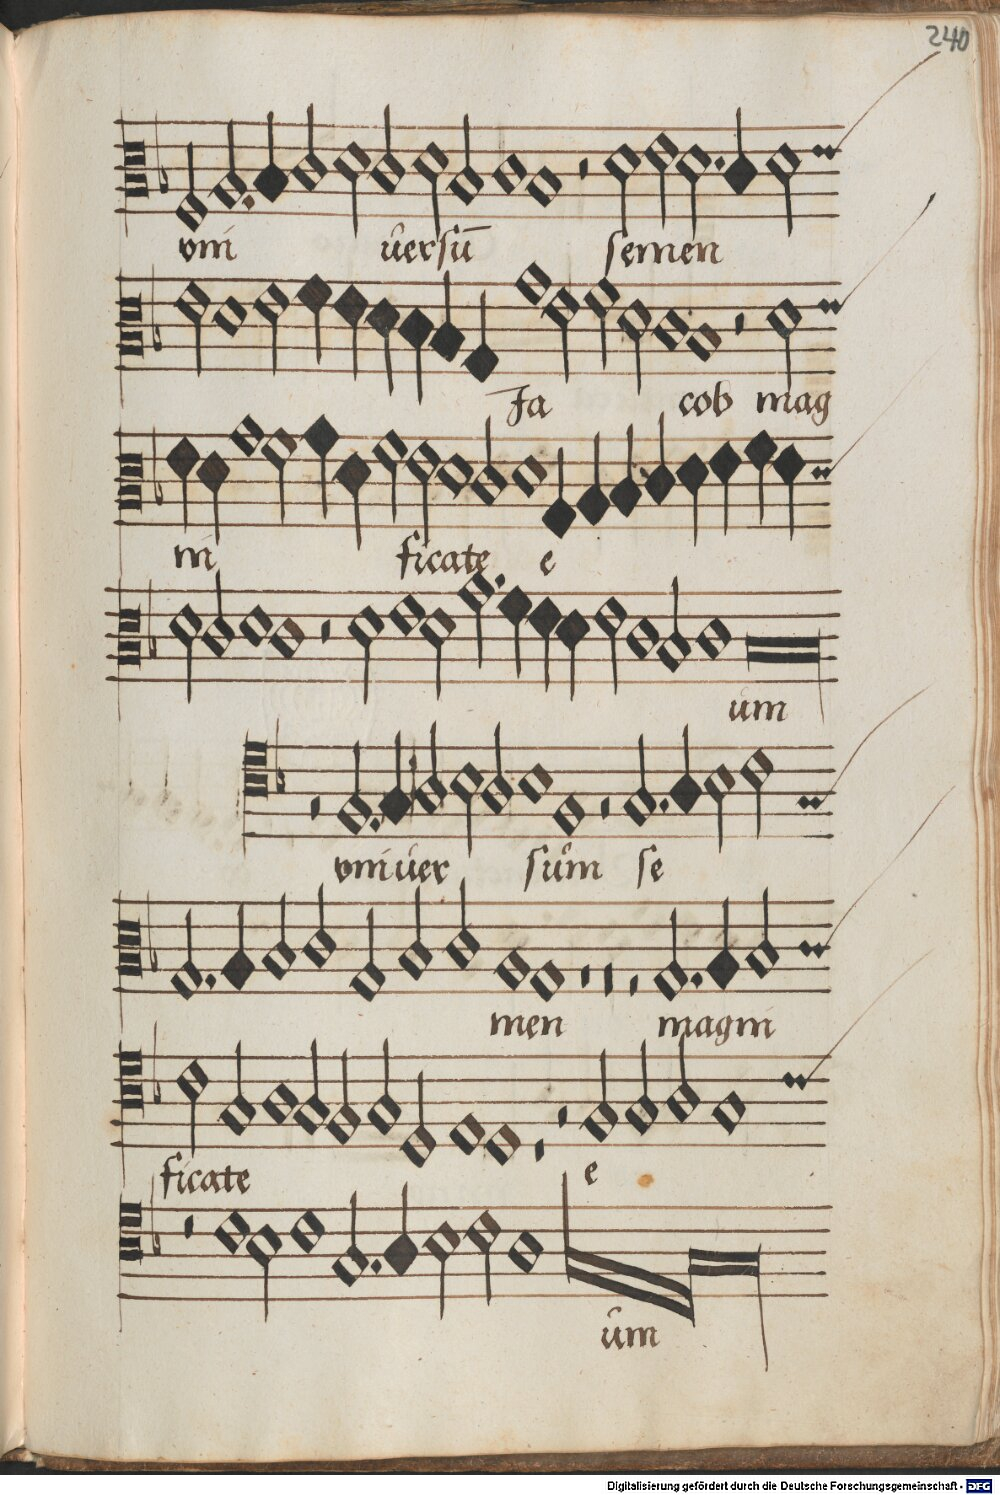 240
vni uersū semen
Ja cob mag
ni ficate e
um
vniuer sum se
men magni
ficate e
um
Digitalisierung gefördert durch die Deutsche Forschungsgemeinschaft - DFG